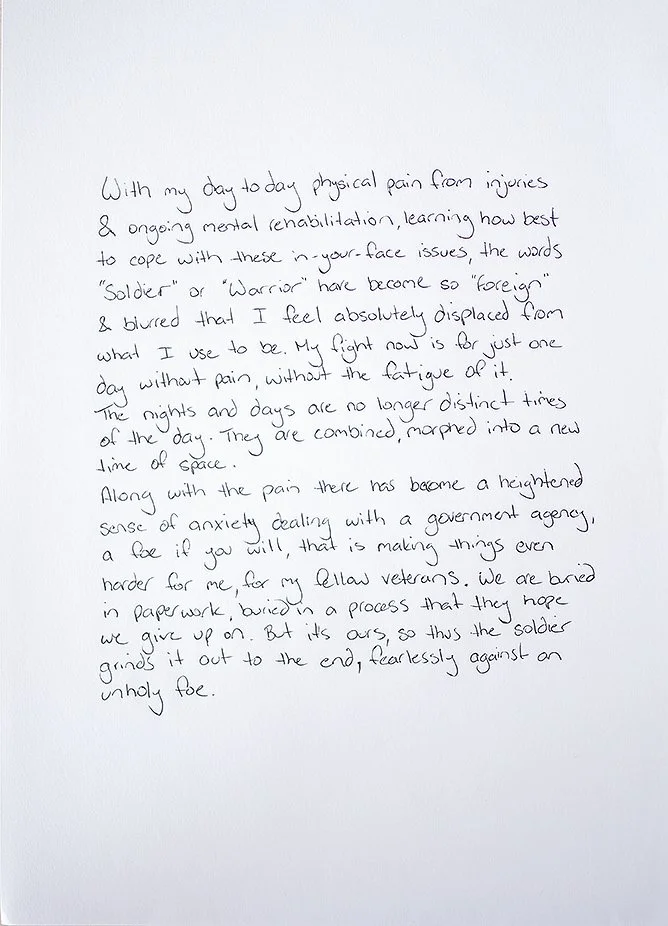 With my day to day physical pain from injuries
& ongoing mental rehabilitation, learning how best
to cope with these in-your-face issues, the words
"Soldier" or "Warrior" have become so "foreign"
& blurred that I feel absolutely displaced from
what I use to be. My fight now is for just one
day without pain, without the fatigue of it.
The nights and days are no longer distinct times
of the day. They are combined, morphed into a new
time of space.
Along with the pain there has become a heightened
sense of anxiety dealing with a government agency,
a foe if you will, that is making things even
harder for me, for my fellow veterans. We are buried
in paperwork, buried in a process that they hope
we give up on. But it's ours, so thus the soldier
grinds it out to the end, fearlessly against an
unholy foe.